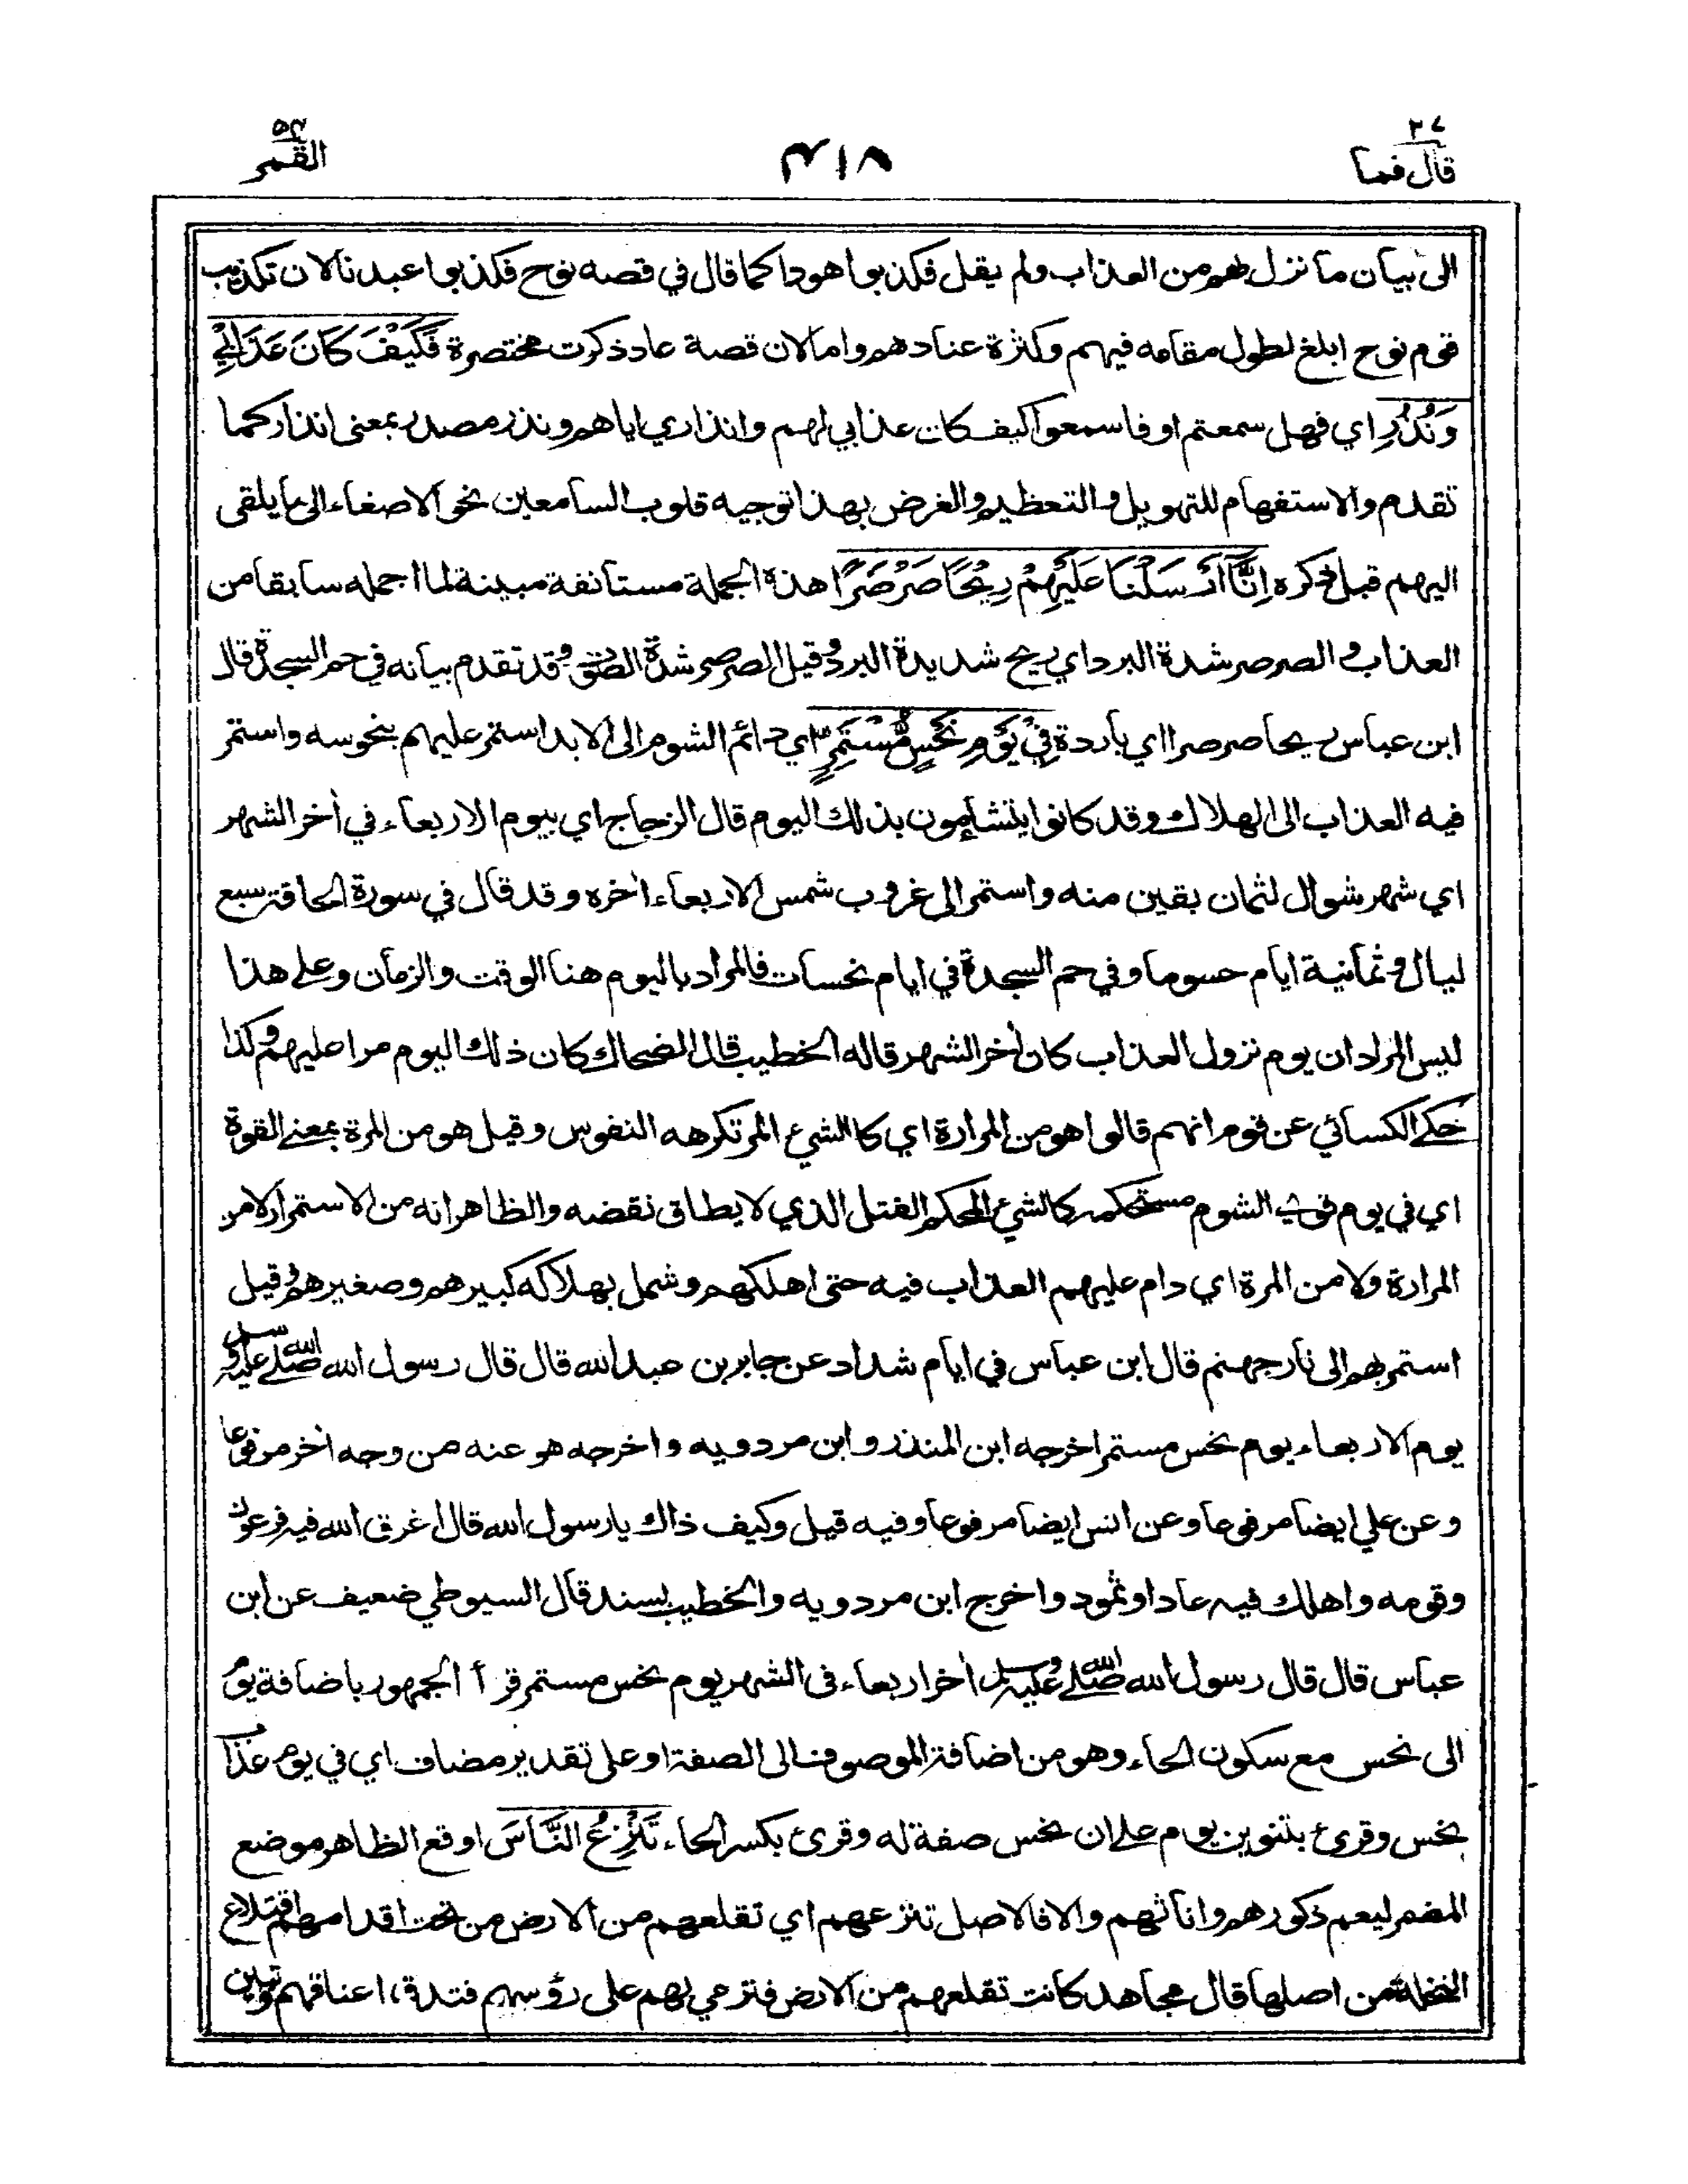 ٢٧
قال فما
٤١٨
٥٤
القمر
الى بيان ما نزل بهم من العذاب ولم يقل فكذبوا هودا كما قال في قصه نوح فكذبوا عبدنا لان تكذيب
قوم نوح ابلغ لطول مقامه فيهم وكثرة عنادهم واما لان قصة عاد ذكرت مختصرة فَكَيْفَ كَانَ عَذَابِيْ
وَنُذُرِ اي فهل سمعتم او فاسمعوا كيف كان عذابي لهم وانذاري اياهم ونذر مصدر بمعنى انذار كما
تقدم والاستفهام للتهويل والتعظيم والغرض بهذا توجيه قلوب السامعين نحو الاصغاء الى ما يلقى
اليهم قبل ذكره اِنَّآ اَرْسَلْنَا عَلَيْهِمْ رِيْحًا صَرْصَرًا هذه الجملة مستانفة مبينة لما اجمله سابقا من
العذاب والصرصر شدة البرد اي ريح شديدة البرد وقيل الصرصر شدة الصوت وقد تقدم بيانه في حم السجدة قال
ابن عباس ريحا صرصرا اي باردة فِيْ يَوْمِ نَحْسٍ مُّسْتَمِرٍّ اي دائم الشوم الى الابد استمر عليهم بنحوسه واستمر
فيه العذاب الى الهلاك وقد كانوا يتشاءمون بذلك اليوم قال الزجاج اي بيوم الاربعاء في اخر الشهر
اي شهر شوال لثمان بقين منه واستمر الى غروب شمس الاربعاء اخره وقد قال في سورة الحاقة سبع
ليال وثمانية ايام حسوما وفي حم السجدة في ايام نحسات فالمراد باليوم هنا الوقت والزمان وعلى هذا
ليس المراد ان يوم نزول العذاب كان اخر الشهر قاله الخطيب قال الضحاك كان ذلك اليوم مرا عليهم وكذا
حكى الكسائي عن قوم انهم قالوا هو من المرارة اي كالشيء المر تكرهه النفوس وقيل هو من المرة بمعنى القوة
اي في يوم قوي الشوم مستحكمه كالشيء المحكم الفتل الذي لا يطاق نقضه والظاهر انه من الاستمرار لا من
المرارة ولا من المرة اي دام عليهم العذاب فيه حتى اهلكهم وشمل بهلاكه كبيرهم وصغيرهم وقيل
استمر بهم الى نار جهنم قال ابن عباس في ايام شداد عن جابر بن عبد الله قال قال رسول الله صلى الله عليه وسلم
يوم الاربعاء يوم نحس مستمر اخرجه ابن المنذر وابن مردويه واخرجه هو عنه من وجه اخر مرفوعا
وعن علي ايضا مرفوعا وعن انس ايضا مرفوعا وفيه قيل وكيف ذاك يا رسول الله قال اغرق الله فيه فرعون
وقومه واهلك فيه عادا وثمود واخرج ابن مردويه والخطيب بسند قال السيوطي ضعيف عن ابن
عباس قال قال رسول الله صلى الله عليه وسلم اخر اربعاء في الشهر يوم نحس مستمر قرأ الجمهور باضافة يوم
الى نحس مع سكون الحاء وهو من اضافة الموصوف الى الصفة او على تقدير مضاف اي في يوم عذاب
نحس وقرئ بتنوين يوم على ان نحس صفة له وقرئ بكسر الحاء تَنْزِعُ النَّاسَ اوقع الظاهر موضع
المضمر ليعم ذكورهم واناثهم والا فالاصل تنزعهم اي تقلعهم من الارض من تحت اقدامهم اقتلاع
النخلة من اصلها قال مجاهد كانت تقلعهم من الارض فترمي بهم على رؤسهم فتدق اعناقهم وتبين